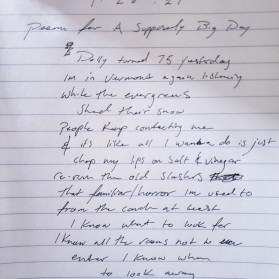 1 · 20 · 21
Poem for A Supposedly Big Day
Dolly turned 75 yesterday
Im in Vermont again listening
while the evergreens
shed their snow
People keep contacting me
& its like all I wanna do is just
chap my lips on salt & vinegar
re-run the old slashers
that familiar/horror Im used to
from the couch at least
I know what to look for
I know all the rooms not to
enter I know when
to look away